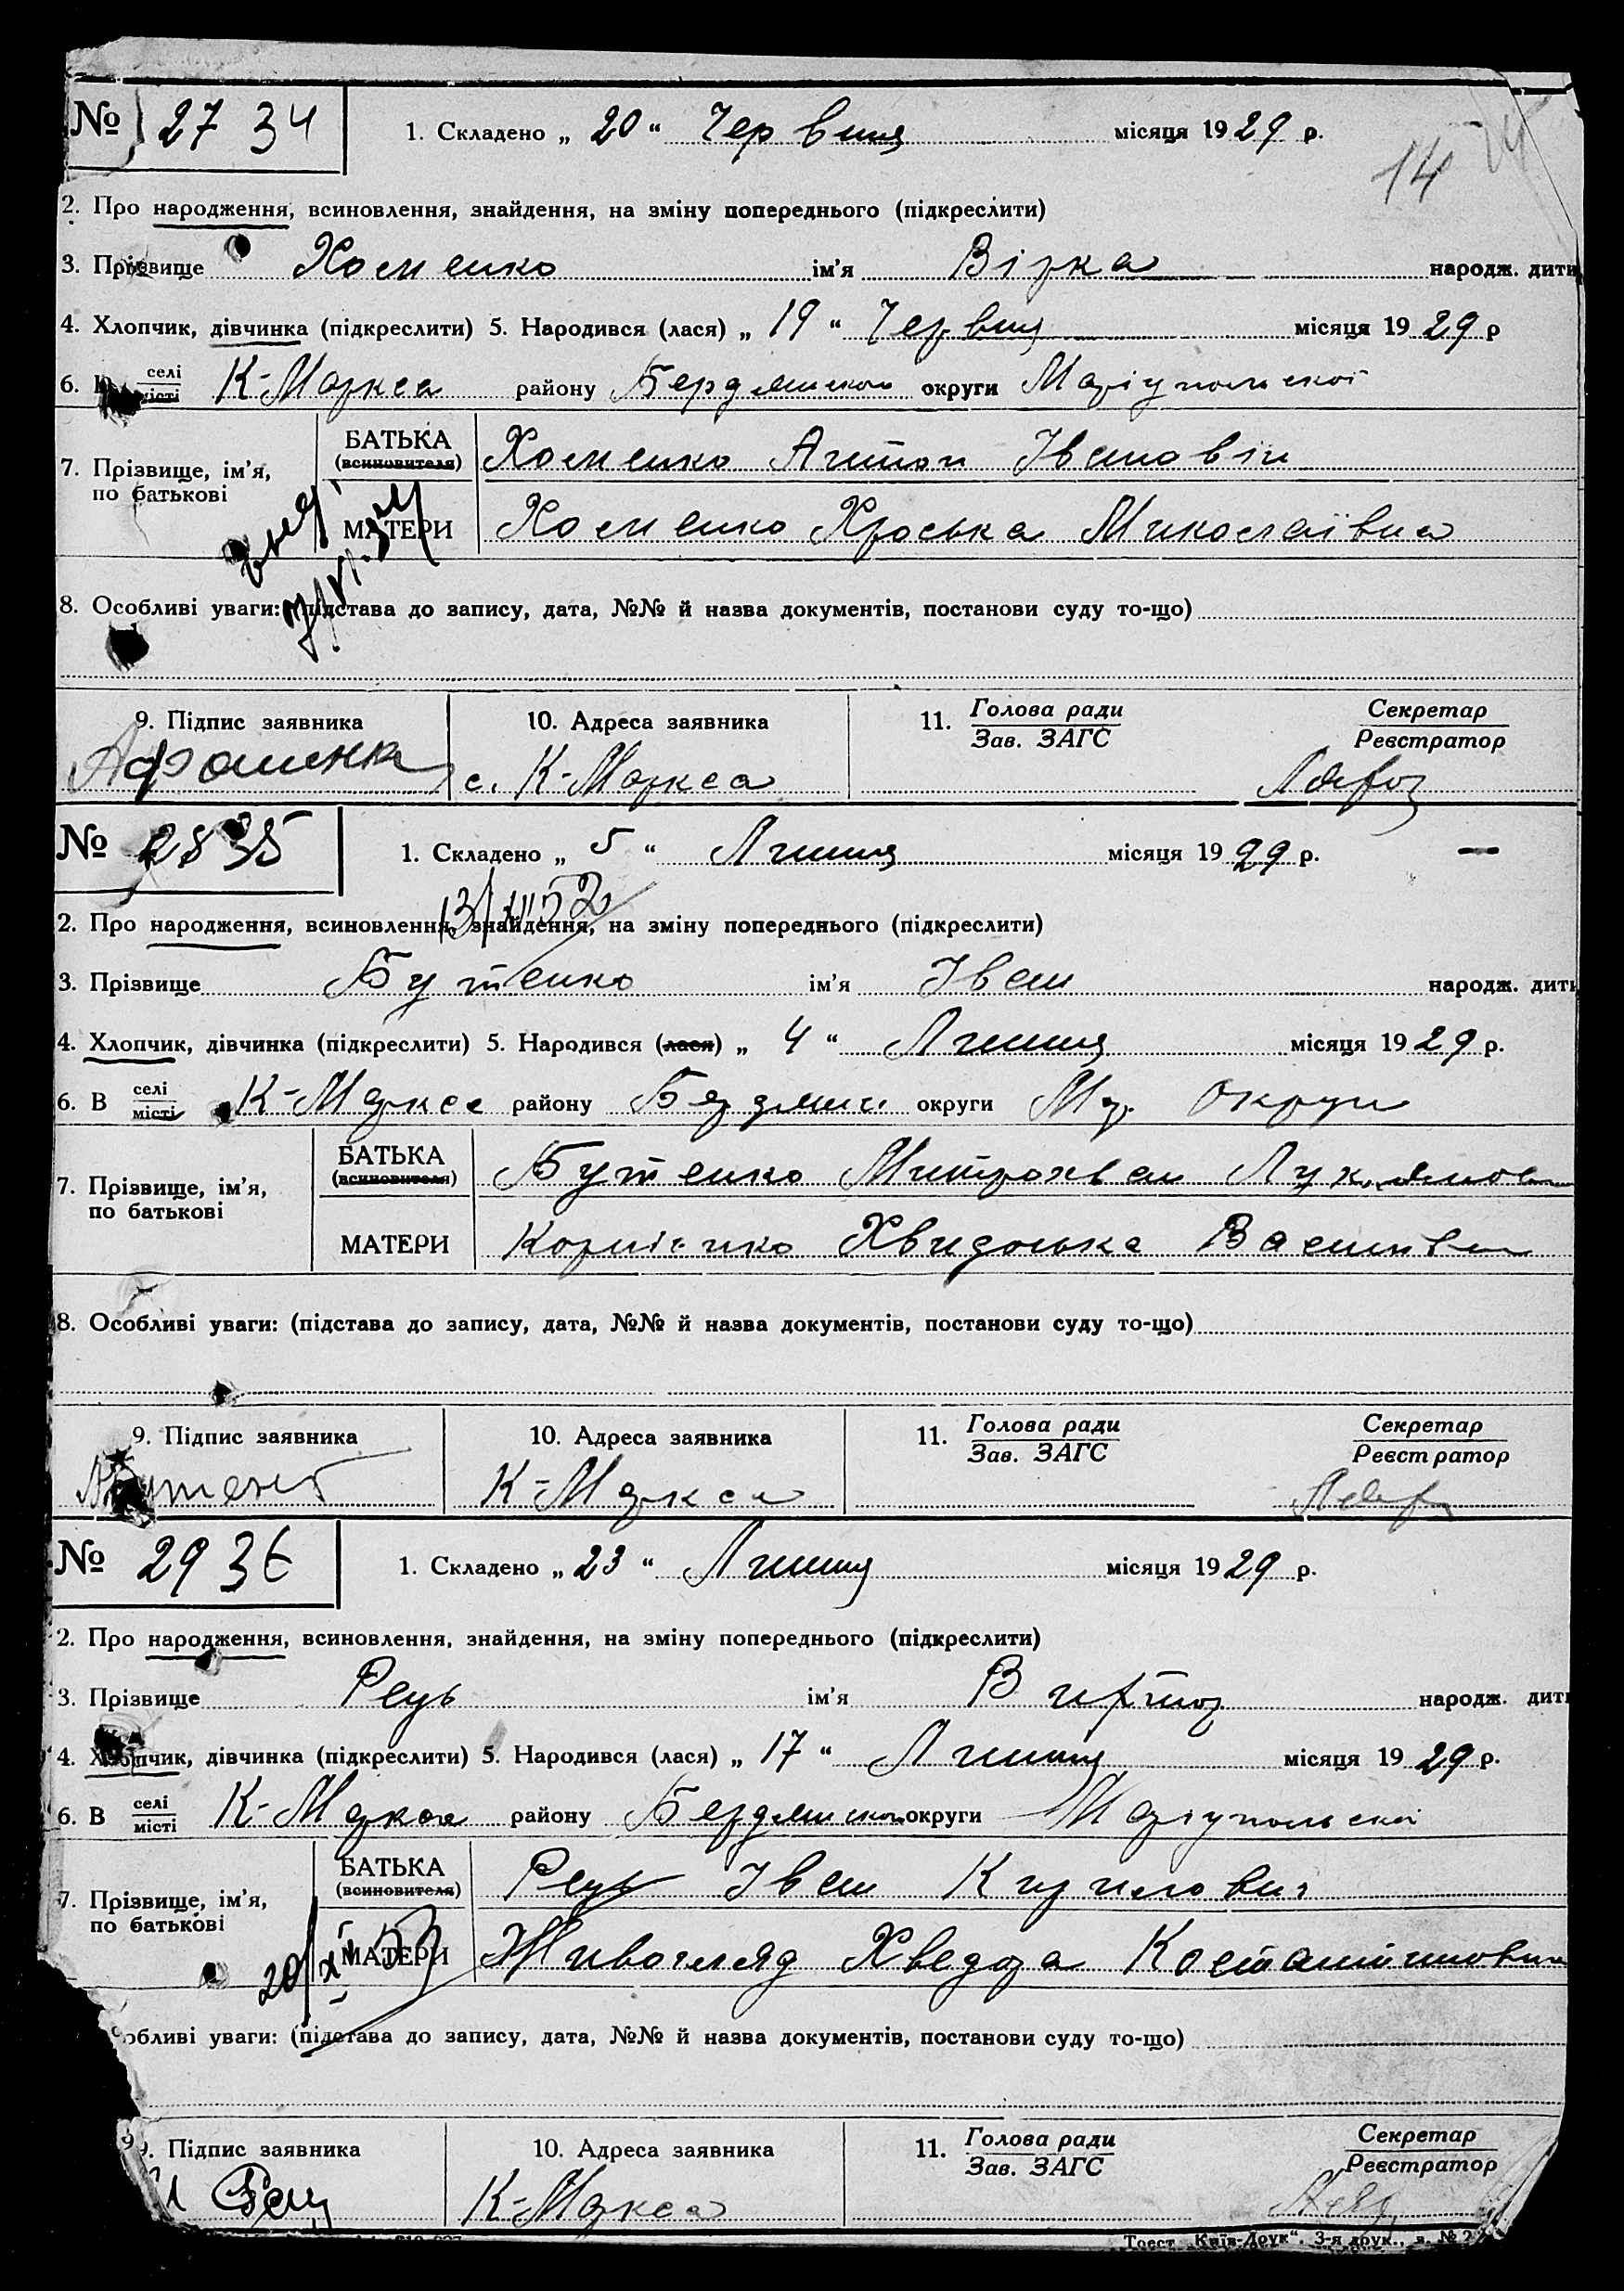 № 27 34
1. Складено „ 20 “ Червня місяця 1929 р.
14
2. Про народження, всиновлення, знайдення, на зміну попереднього (підкреслити)
3. Прізвище Хоменко ім’я Вірка народж. дити
4. Хлопчик, дівчинка (підкреслити) 5. Народився (лася) „ 19 “ Червня місяця 1929 р
6. селі місті К-Маркса району Бердянсько округи Маріупольської
7. Прізвище, ім’я, по батькові
БАТЬКА (всиновителя) Хоменко Антон Іванович
МАТЕРИ Хоменко Хроська Миколаївна
8. Особливі уваги: (підстава до запису, дата, №№ й назва документів, постанови суду то-що)
9. Підпис заявника 10. Адреса заявника 11. Голова ради Зав. ЗАГС Секретар Реєстратор
с. К-Маркса
№ 28 35
1. Складено „ 5 “ Липня місяця 1929 р.
13/XII 52
2. Про народження, всиновлення, знайдення, на зміну попереднього (підкреслити)
3. Прізвище Бутенко ім’я Іван народж. дити
4. Хлопчик, дівчинка (підкреслити) 5. Народився (лася) „ 4 “ Липня місяця 1929 р.
6. В селі місті К-Маркса району Бердянськ округи Мар. Округи
7. Прізвище, ім’я, по батькові
БАТЬКА (всиновителя) Бутенко Митрохван
МАТЕРИ Хвидоська
8. Особливі уваги: (підстава до запису, дата, №№ й назва документів, постанови суду то-що)
9. Підпис заявника 10. Адреса заявника 11. Голова ради Зав. ЗАГС Секретар Реєстратор
К-Маркса
№ 29 36
1. Складено „ 23 “ Липня місяця 1929 р.
2. Про народження, всиновлення, знайдення, на зміну попереднього (підкреслити)
3. Прізвище Рець ім’я Виктор народж. дити
4. Хлопчик, дівчинка (підкреслити) 5. Народився (лася) „ 17 “ Липня місяця 1929 р.
6. В селі місті К-Маркса району Бердянсько округи Маріупольскої
7. Прізвище, ім’я, по батькові
БАТЬКА (всиновителя) Рець Іван Кирилович
МАТЕРИ Живогляд Хведора Костантиновна
20/XII 53
обливі уваги: (підстава до запису, дата, №№ й назва документів, постанови суду то-що)
9. Підпис заявника 10. Адреса заявника 11. Голова ради Зав. ЗАГС Секретар Реєстратор
Рец К-Маркса
Трест „Київ-Друк“. 3-я друк., з. №